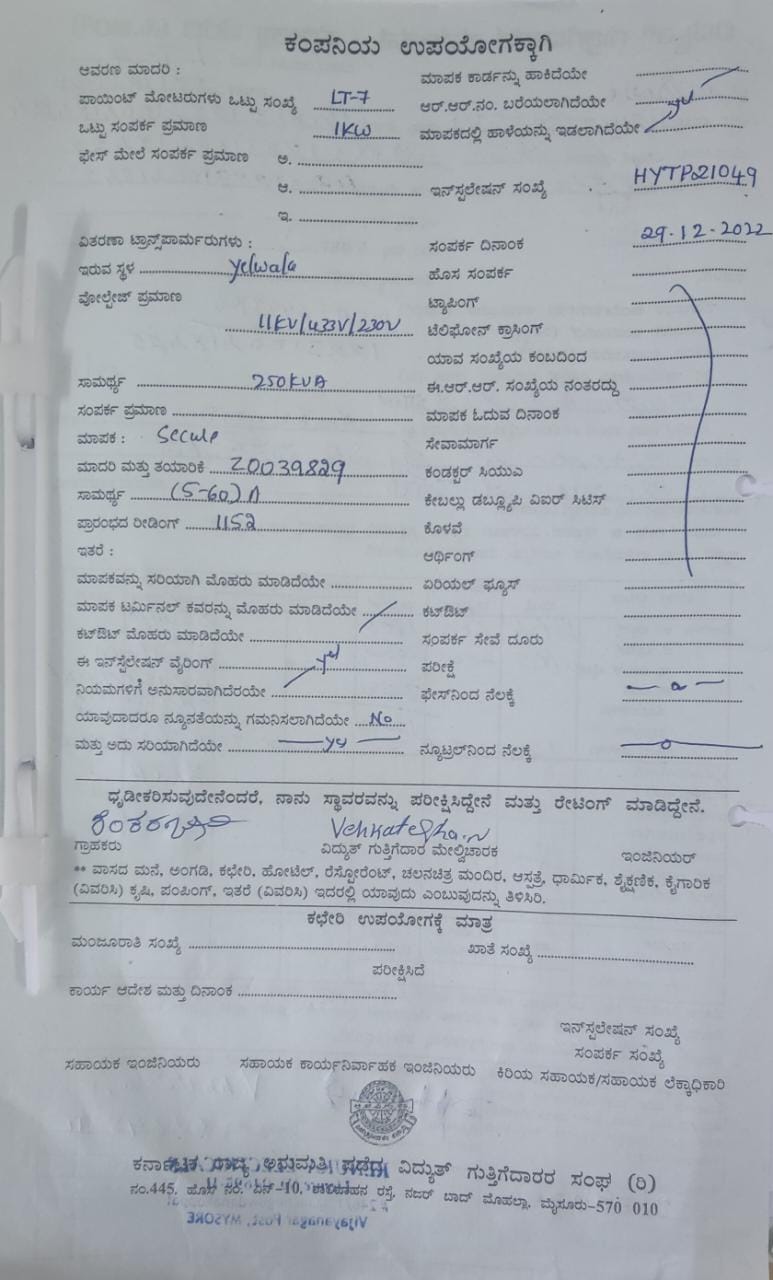 ಕಂಪನಿಯ ಉಪಯೋಗಕ್ಕಾಗಿ
ಆವರಣ ಮಾದರಿ :
ಮಾಪಕ ಕಾರ್ಡನ್ನು ಹಾಕಿದೆಯೇ
ಪಾಯಿಂಟ್ ಮೋಟರುಗಳು ಒಟ್ಟು ಸಂಖ್ಯೆ LT-7
ಆರ್.ಆರ್.ನಂ. ಬರೆಯಲಾಗಿದೆಯೇ
ಒಟ್ಟು ಸಂಪರ್ಕ ಪ್ರಮಾಣ 1KW
ಮಾಪಕದಲ್ಲಿ ಹಾಳೆಯನ್ನು ಇಡಲಾಗಿದೆಯೇ yes
ಫೇಸ್ ಮೇಲೆ ಸಂಪರ್ಕ ಪ್ರಮಾಣ ಅ.
ಆ.
ಇನ್‌ಸ್ಟಲೇಷನ್ ಸಂಖ್ಯೆ HYTP21049
ಇ.
ವಿತರಣಾ ಟ್ರಾನ್ಸ್‌ಪಾರ್ಮರುಗಳು :
ಸಂಪರ್ಕ ದಿನಾಂಕ 29.12.2022
ಇರುವ ಸ್ಥಳ yelwala
ಹೊಸ ಸಂಪರ್ಕ
ವೋಲ್ಟೇಜ್ ಪ್ರಮಾಣ
ಟ್ಯಾಪಿಂಗ್
11KV/433V/230V
ಟೆಲಿಫೋನ್ ಕ್ರಾಸಿಂಗ್
ಯಾವ ಸಂಖ್ಯೆಯ ಕಂಬದಿಂದ
ಸಾಮರ್ಥ್ಯ 250KVA
ಈ.ಆರ್.ಆರ್. ಸಂಖ್ಯೆಯ ನಂತರದ್ದು
ಸಂಪರ್ಕ ಪ್ರಮಾಣ
ಮಾಪಕ ಓದುವ ದಿನಾಂಕ
ಮಾಪಕ : Secure
ಸೇವಾಮಾರ್ಗ
ಮಾದರಿ ಮತ್ತು ತಯಾರಿಕೆ Z0039829
ಕಂಡಕ್ಟರ್ ಸಿಯುಎ
ಸಾಮರ್ಥ್ಯ (5-60)A
ಕೇಬಲ್ಲು ಡಬ್ಲ್ಯೂಪಿ ವಿಐರ್ ಸಿಟಿಸ್
ಪ್ರಾರಂಭದ ರೀಡಿಂಗ್ 1152
ಕೊಳವೆ
ಇತರೆ :
ಆರ್ಥಿಂಗ್
ಮಾಪಕವನ್ನು ಸರಿಯಾಗಿ ಮೊಹರು ಮಾಡಿದೆಯೇ
ಏರಿಯಲ್ ಫ್ಯೂಸ್
ಮಾಪಕ ಟರ್ಮಿನಲ್ ಕವರನ್ನು ಮೊಹರು ಮಾಡಿದೆಯೇ
ಕಟ್‌ಔಟ್
ಕಟ್‌ಔಟ್ ಮೊಹರು ಮಾಡಿದೆಯೇ
ಸಂಪರ್ಕ ಸೇವೆ ದೂರು
ಈ ಇನ್‌ಸ್ಟಲೇಷನ್ ವೈರಿಂಗ್ yes
ಪರೀಕ್ಷೆ
ನಿಯಮಗಳಿಗೆ ಅನುಸಾರವಾಗಿದೆರಯೇ
ಫೇಸ್‌ನಿಂದ ನೆಲಕ್ಕೆ
ಯಾವುದಾದರೂ ನ್ಯೂನತೆಯನ್ನು ಗಮನಿಸಲಾಗಿದೆಯೇ No
ಮತ್ತು ಅದು ಸರಿಯಾಗಿದೆಯೇ yes
ನ್ಯೂಟ್ರಲ್‌ನಿಂದ ನೆಲಕ್ಕೆ
ಧೃಡೀಕರಿಸುವುದೇನೆಂದರೆ, ನಾನು ಸ್ಥಾವರವನ್ನು ಪರೀಕ್ಷಿಸಿದ್ದೇನೆ ಮತ್ತು ರೇಟಿಂಗ್ ಮಾಡಿದ್ದೇನೆ.
Venkatesha.N
ಗ್ರಾಹಕರು ವಿದ್ಯುತ್ ಗುತ್ತಿಗೆದಾರ ಮೇಲ್ವಿಚಾರಕ ಇಂಜಿನಿಯರ್
** ವಾಸದ ಮನೆ, ಅಂಗಡಿ, ಕಛೇರಿ, ಹೋಟೆಲ್, ರೆಸ್ಟೋರೆಂಟ್, ಚಲನಚಿತ್ರ ಮಂದಿರ, ಆಸ್ಪತ್ರೆ, ಧಾರ್ಮಿಕ, ಶೈಕ್ಷಣಿಕ, ಕೈಗಾರಿಕ
(ವಿವರಿಸಿ) ಕೃಷಿ, ಪಂಪಿಂಗ್, ಇತರೆ (ವಿವರಿಸಿ) ಇದರಲ್ಲಿ ಯಾವುದು ಎಂಬುವುದನ್ನು ತಿಳಿಸಿರಿ.
ಕಛೇರಿ ಉಪಯೋಗಕ್ಕೆ ಮಾತ್ರ
ಮಂಜೂರಾತಿ ಸಂಖ್ಯೆ
ಖಾತೆ ಸಂಖ್ಯೆ
ಪರೀಕ್ಷಿಸಿದೆ
ಕಾರ್ಯ ಆದೇಶ ಮತ್ತು ದಿನಾಂಕ
ಇನ್‌ಸ್ಟಲೇಷನ್ ಸಂಖ್ಯೆ
ಸಂಪರ್ಕ ಸಂಖ್ಯೆ
ಸಹಾಯಕ ಇಂಜಿನಿಯರು ಸಹಾಯಕ ಕಾರ್ಯನಿರ್ವಾಹಕ ಇಂಜಿನಿಯರು ಕಿರಿಯ ಸಹಾಯಕ/ಸಹಾಯಕ ಲೆಕ್ಕಾಧಿಕಾರಿ
ಕರ್ನಾಟಕ ರಾಜ್ಯ ಅನುಮತಿ ಪಡೆದ ವಿದ್ಯುತ್ ಗುತ್ತಿಗೆದಾರರ ಸಂಘ (ರಿ)
ನಂ.445, ಹೊಸ ನಂ. ಎನ್-10, ರಸ್ತೆ, ನಜರ್ ಬಾದ್ ಮೊಹಲ್ಲಾ, ಮೈಸೂರು-570 010
Vijayanagar Post, MYSORE